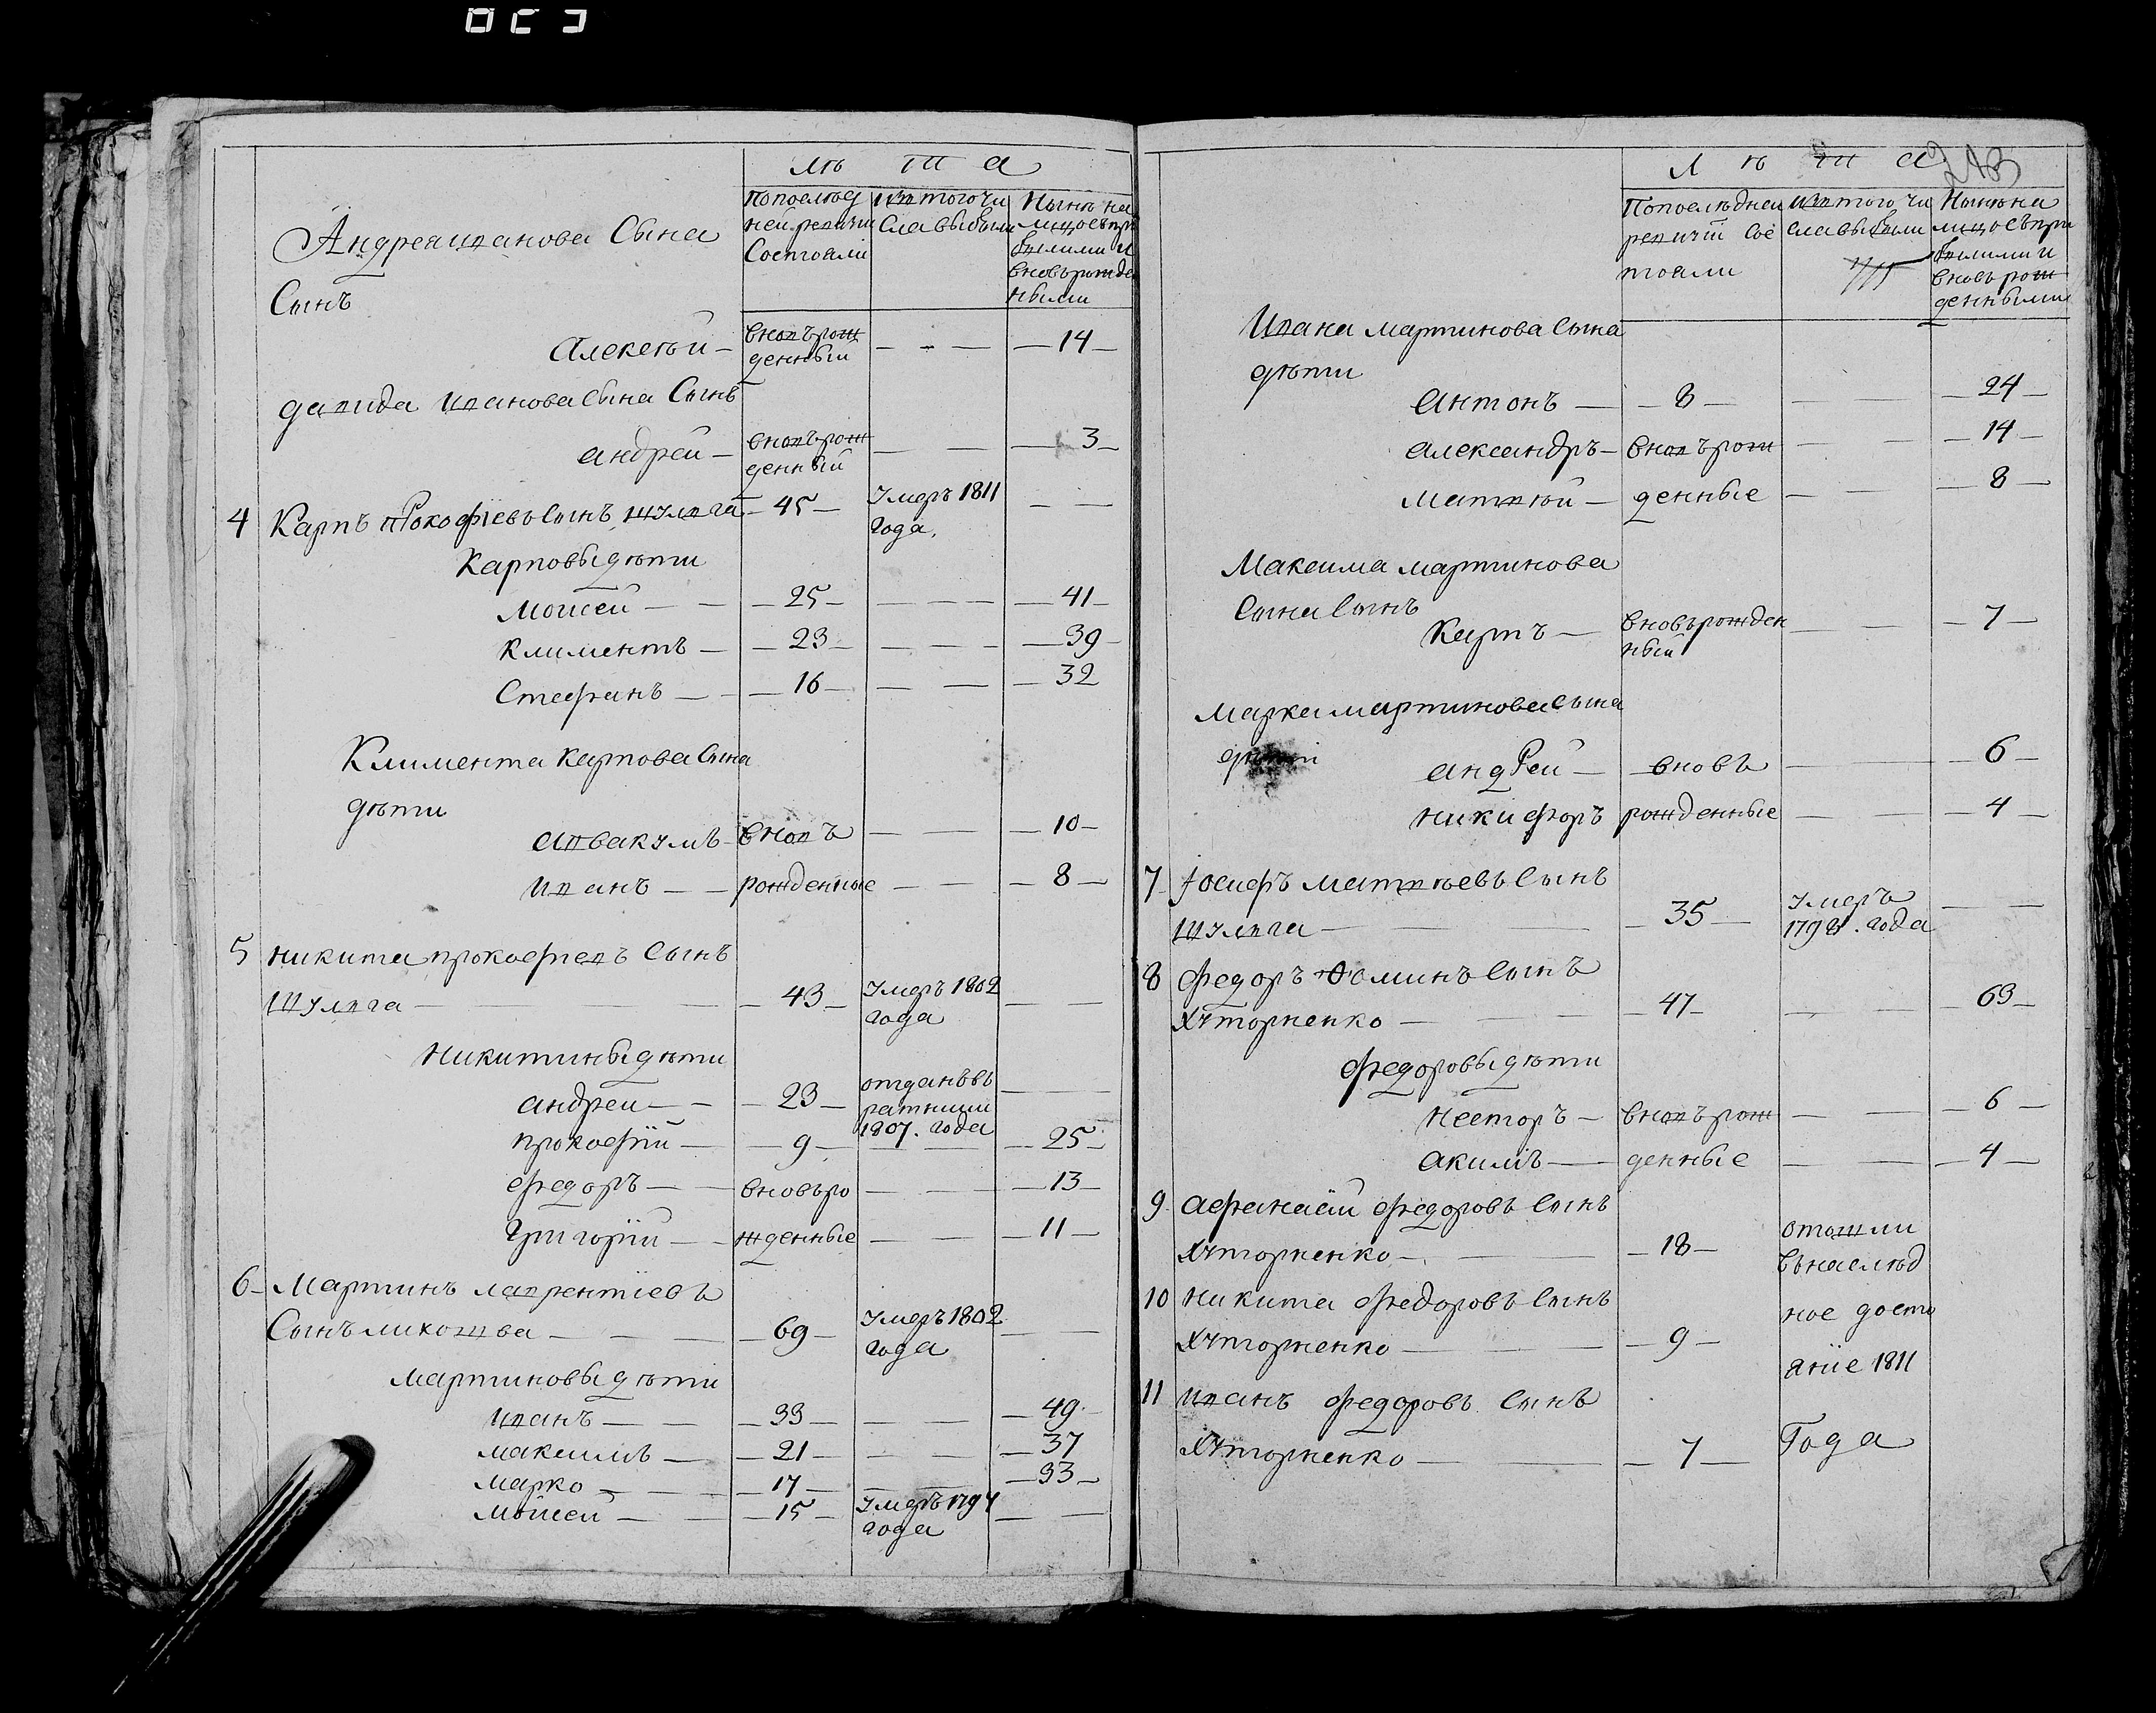 лѣта
Попослѣд
ней ревизіи
Состояли
изтогочи
Славыбыли
Нынѣ на
лицосъпри
былими и
вновърожде
нными
Андрея иванова Сына
Сынъ
Алексѣй — вновърож — — — 14 —
денный
давида иванова Сына Сынъ
андрей — вновърож — — — 3 —
денный
4 Карпъ прокофіевъ Сынъ шулвга — 45 — Умеръ 1811 — —
года.
Карповы дѣти
Моисей — — 25 — — — — 41 —
Климентъ — — 23 — — — — 39 —
Стефанъ — — 16 — — — — 32
Климента Карпова Сына
дѣти
аввакумъ — вновъ — — — 10 —
иванъ — — рожденные — — — 8 —
5 никита прокофіевъ Сынъ
шулвга — — 43 — Умеръ 1802 — —
года
Никитины дѣти
андреи — — 23 — отданъвъ — —
ратники
прокофій — — 9 — 1807. года — 25 —
федоръ — — вновъро — — — 13 —
Григорій — — жденные — — — 11 —
6 — Мартинъ лаврентіевъ
Сынъ — — 69 — Умеръ 1802 — —
года
Мартиновы дѣти
иванъ — — — 33 — — — — 49 —
максимъ — — 21 — — — — 37
марко — — — 17 — — — — 33 —
моисей — — — 15 — Умеръ 1797 — —
года
Л ѣ т а
243
Попослѣдней
ревизіи Сос
тояли
изтого чи
славыбыли
Нынѣ на
лицосъпри
былими и
вновърож
денными
Ивана мартинова Сына
дѣти
антонъ — — 8 — — — — 24 —
александръ — вновърож — — — 14 —
матвѣй — денные — — — 8 —
Максима мартинова
Сына Сынъ
Карпъ — вновърожден — — — 7 —
ный
марка мартинова сына
дѣти
андрей — вновъ — — 6 —
никифоръ рожденные — — — 4 —
7 Іосифъ матвѣевъ Сынъ
шулвга — — — 35 — Умеръ — —
1798. года
8 федоръ Ѳоминъ Сынъ
Хуторненко — — — 47 — — — — 63 —
федоровы дѣти
несторъ — вновърож — — — 6 —
акимъ — денные — — — 4 —
9 афанасій федоровъ Сынъ
Хуторненко — — — 18 — отошли
вънаслѣд
10 никита федоровъ Сынъ
ное досто
Хуторненко — — — 9 —
яніе 1811
11 иванъ федоровъ Сынъ
Хуторненко — — — 7 — Года